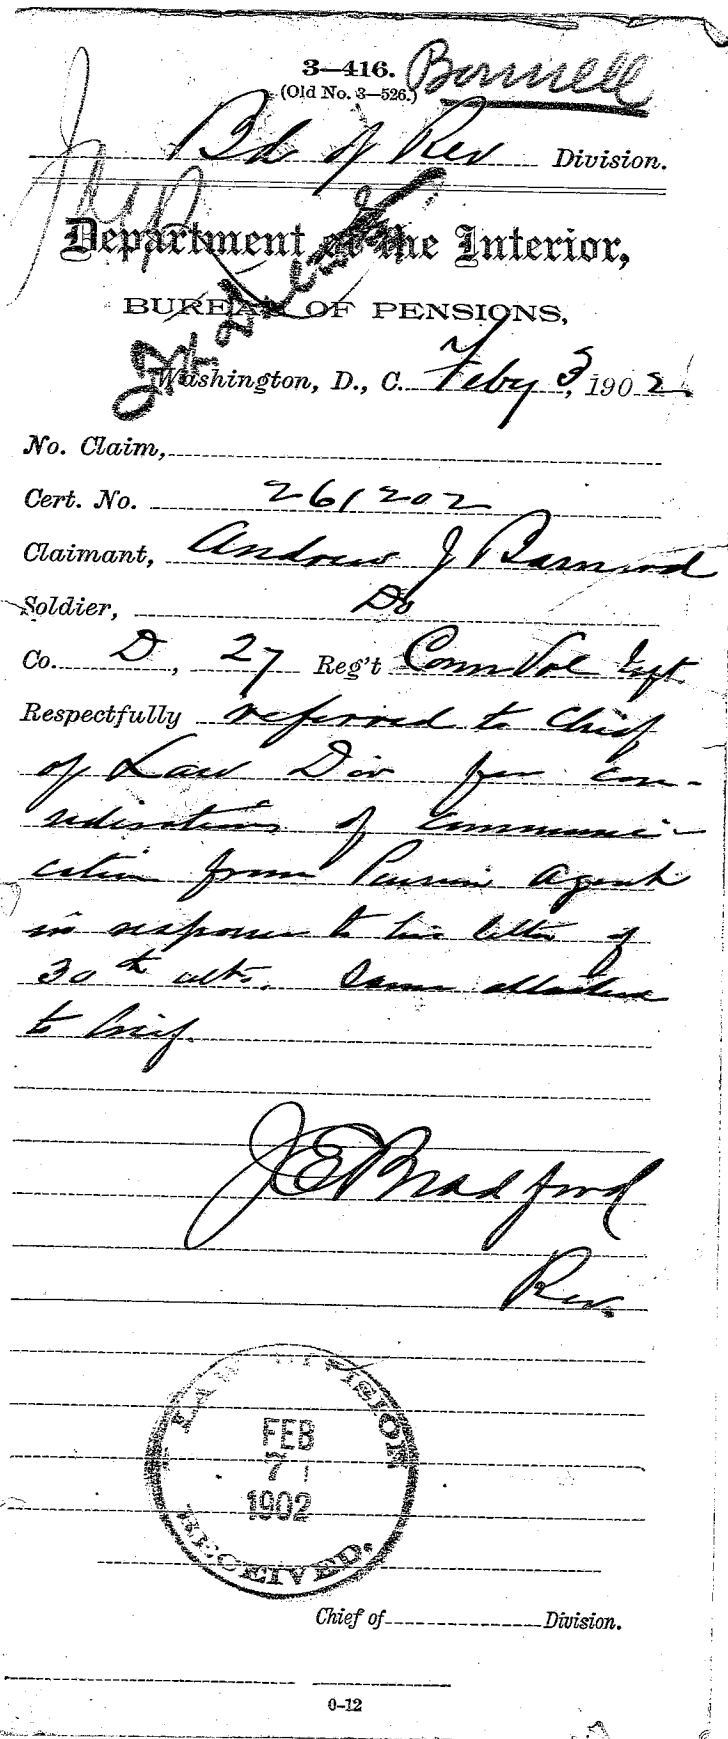 3—416.
(Old No. 3—526.)
Bonnell
Bd of Rev Division.
Department of the Interior,
BUREAU OF PENSIONS,
Washington, D., C. Feby 3, 1902
No. Claim,
Cert. No. 261202
Claimant, Andrew J Barnard
Soldier, Do
Co. D, 27 Reg't Conn Vol Inft
Respectfully referred to Chief
of Law Div for con-
sideration of communi-
cation from Pension Agent
in response to his letter of
30th ult. Same attached
to brief.
J E Bradford
Rev.
LAW DIVISION
FEB
7
1902
RECEIVED.
Chief of Division.
0-12